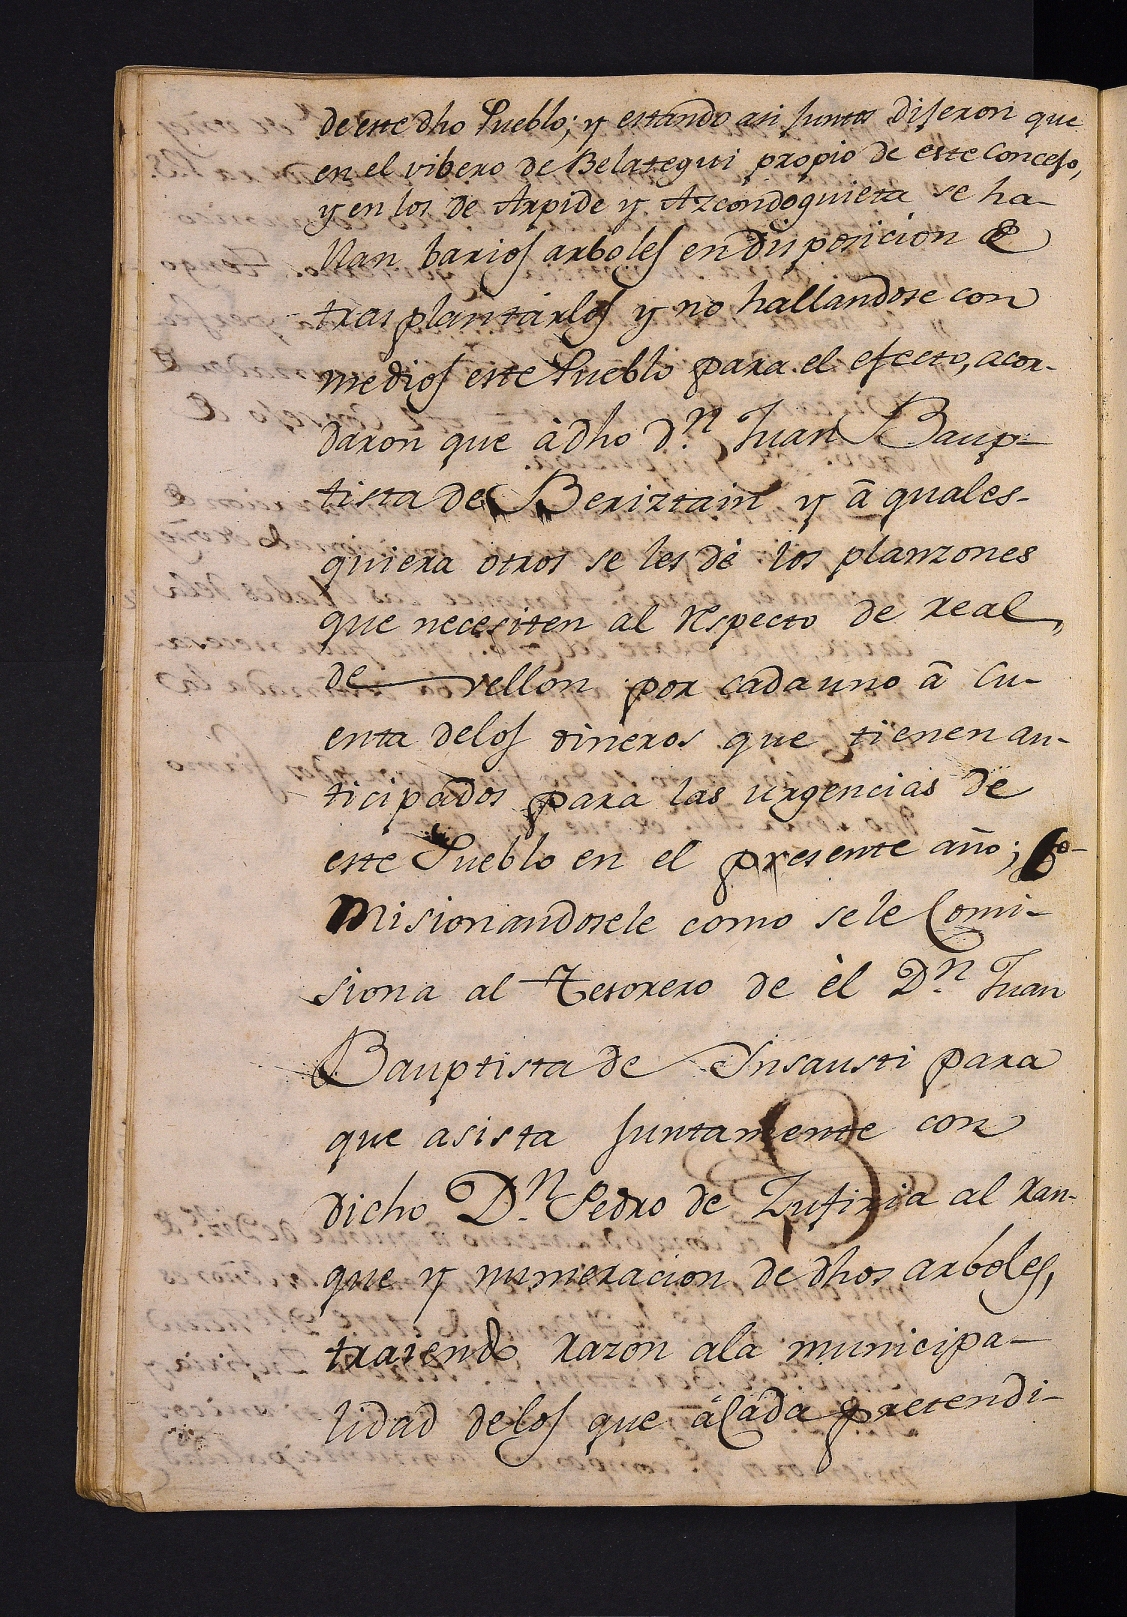 de este dho Pueblo; y estando asi juntos dijeron que
en el vibero de Belategui propio de este Concejo,
y en los de Arpide y Azcondoguieta se ha-
llan barios arboles en disposicion de
trasplantarlos y no hallandose con
medios este Pueblo para el efecto, acor-
daron que à dho Dn. Juan Baup-
tista de Beriztain y â quales-
quiera otros se les dè los planzones
que necesiten al respecto de real
de vellon por cada uno â cu-
enta delos dineros que tienen an-
ticipados para las urgencias de
este Pueblo en el presente año; Co-
misionandosele como sele Comi-
siona al Tesorero de èl Dn. Juan
Bauptista de Insausti para
que asista juntamente con
dicho Dn. Pedro de Zufiria al Xan-
que y numeracion de dhos arboles,
traiendo razon ala municipa-
lidad delos que á Cada pretendi-